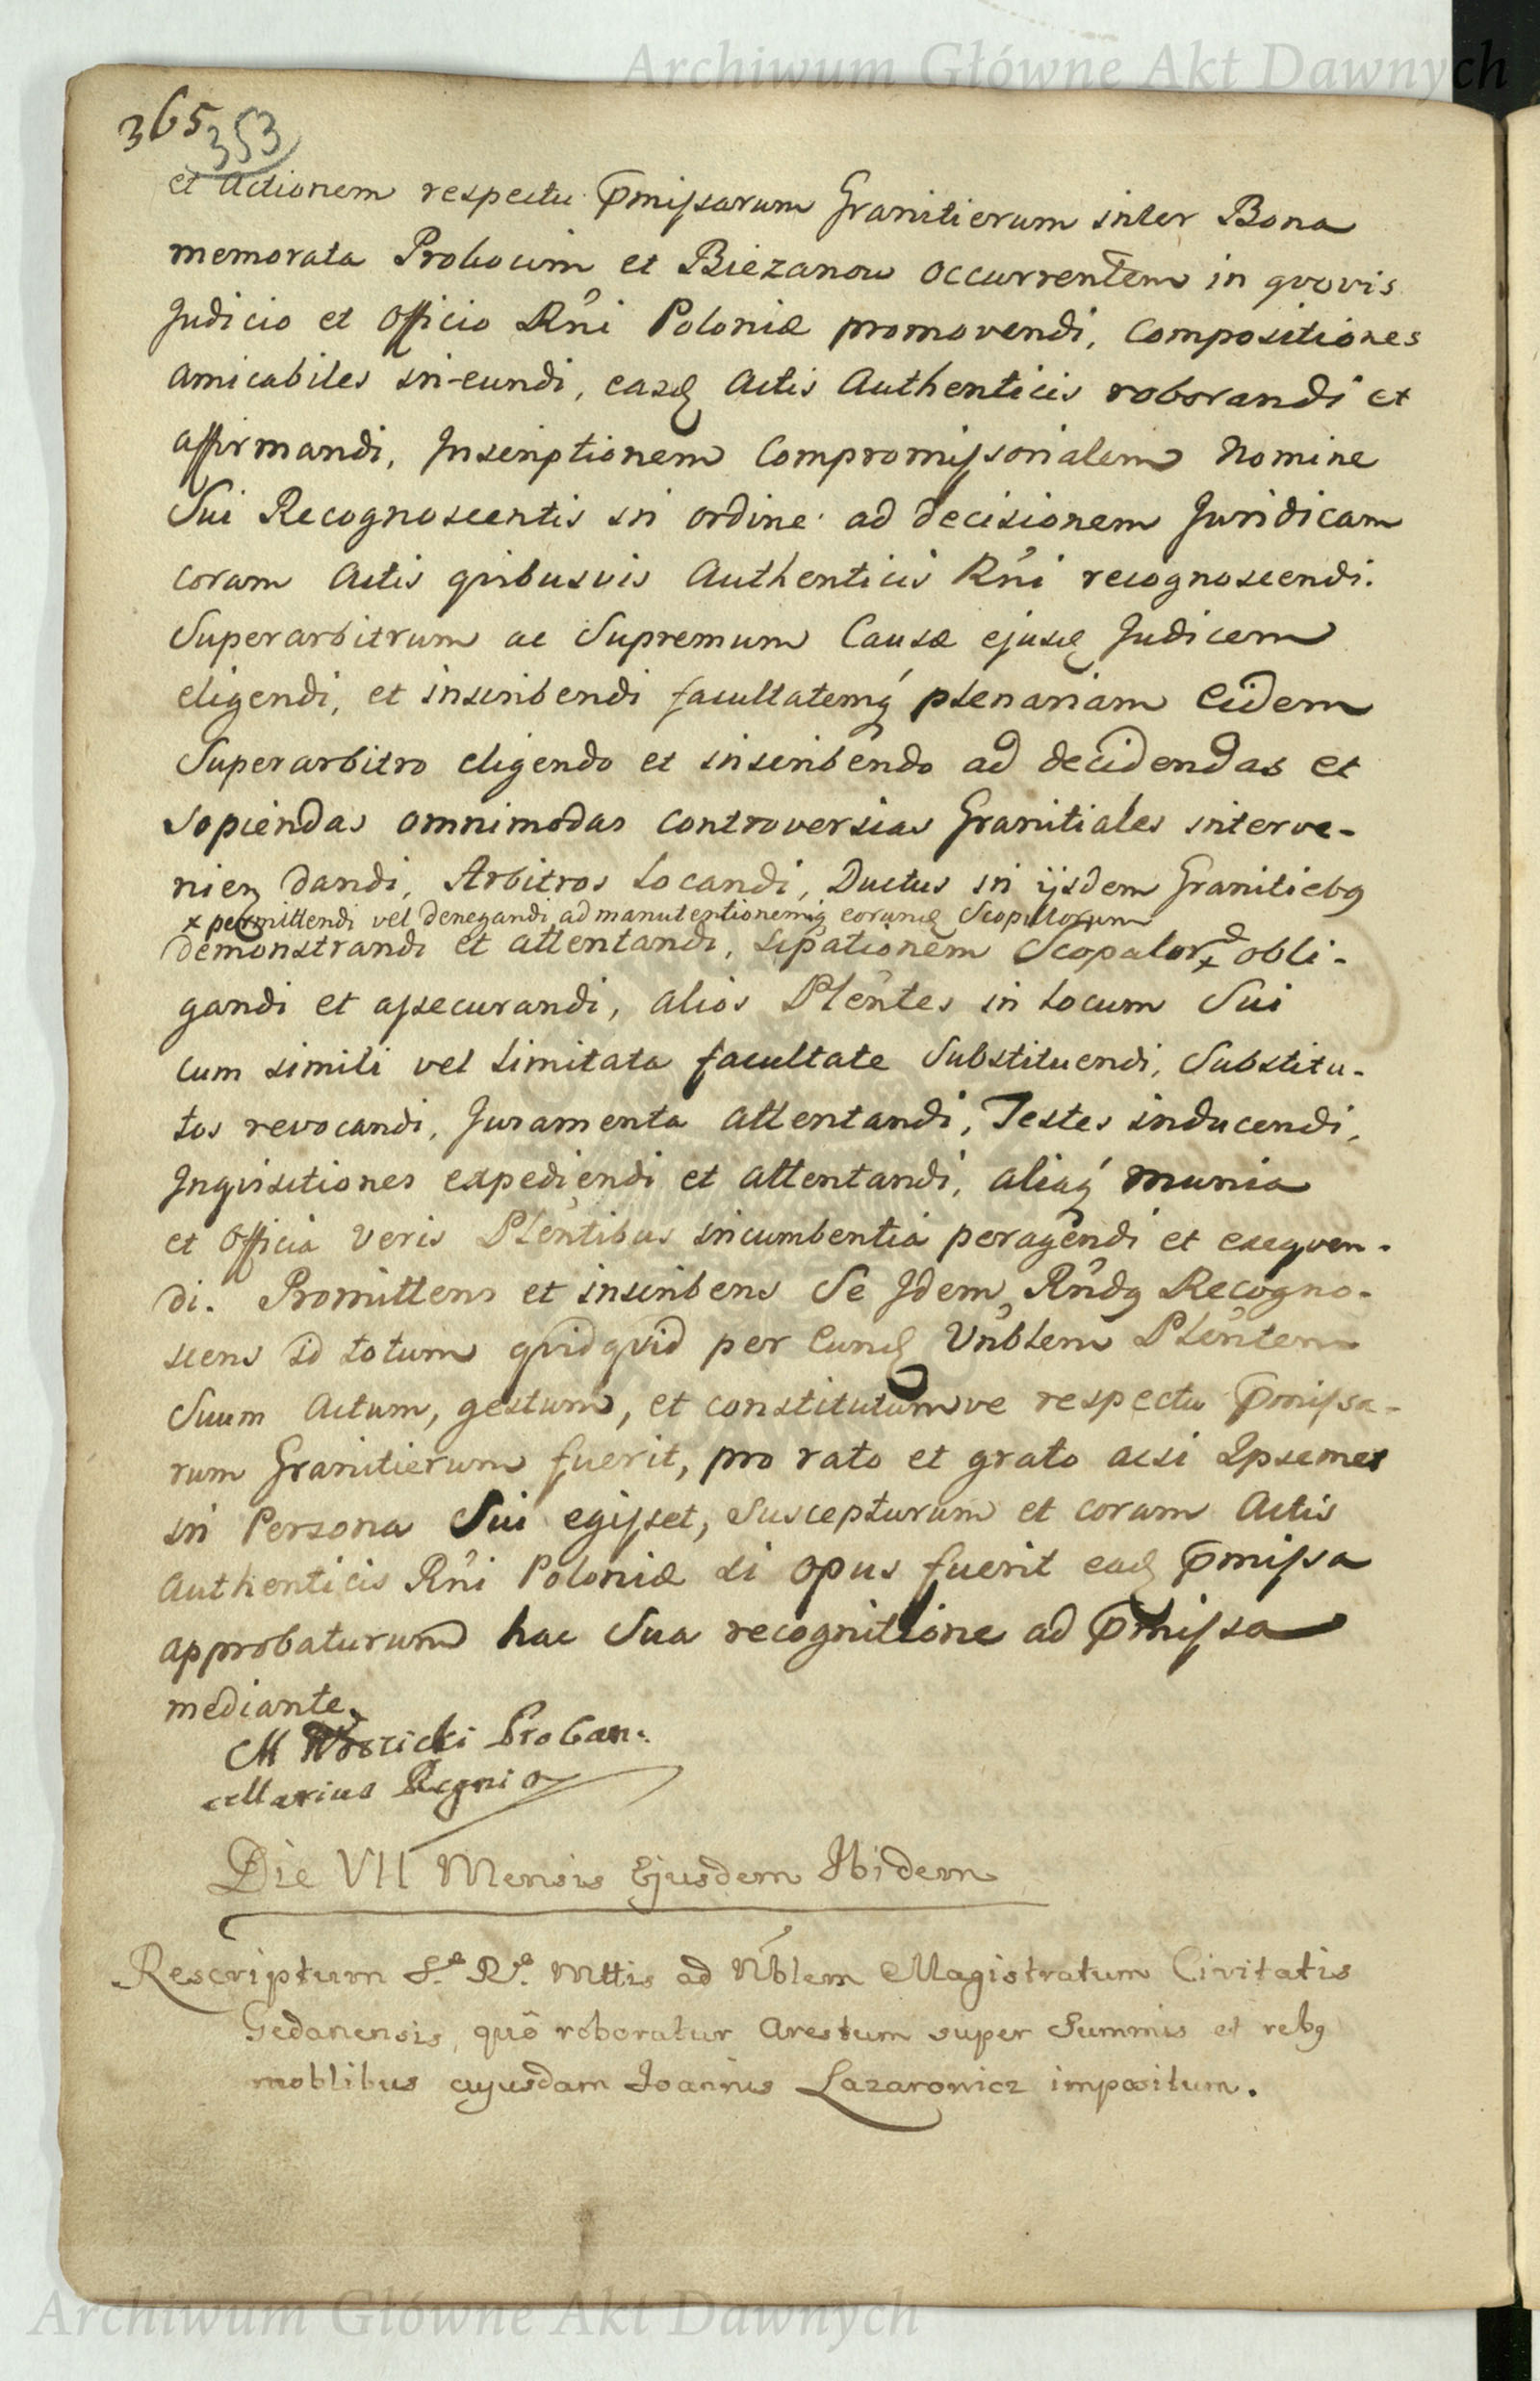 Archiwum Główne Akt Dawnych
365
353
et Actionem respectu p̄missarum Granitierum inter Bona
memorata Prokocim et Biezanow occurrentem in quovis
Judicio et Officio Rn̂i Poloniæ promovendi, Compositiones
amicabiles in-eundi, easq Actis Authenticis roborandi et
affirmandi, Inscriptionem Compromissorialem Nomine
Sui Recognoscentis in ordine ad decisionem Juridicam
coram Actis quibusvis Authenticis Rn̂i recognoscendi.
Superarbitrum ac Supremum Causæ ejusq Judicem
eligendi, et inscribendi facultatemq́ plenariam Eidem
Superarbitro eligendo et inscribendo ad decidendas et
sopiendas omnimodas controversias Granitiales interve-
nien dandi, Arbitros Locandi, Ductus in ijsdem Granitiebq
x permittendi vel denegandi ad manutentionemq eorumq Scopulorum
demonstrandi et attentandi, sipationem Scopulor x obli-
gandi et assecurandi, alios Plen̂tes in Locum Sui
cum simili vel Limitata facultate Substituendi, Substitu-
tos revocandi, Juramenta attentandi, Testes inducendi,
Inquisitiones expediendi et attentandi, aliaq́ munia
et Officia veris Plen̂tibus incumbentia peragendi et exequen-
di. Promittens et inscribens Se Idem Rn̂dq Recogno-
scens id totum quidquid per Eunq Vn̂blem Plen̂tem
Suum Actum, gestum, et constitutumve respectu p̄missa-
rum Granitierum fuerit, pro rato et grato acsi Ipsemet
in Persona Sui egisset, suscepturum et coram Actis
Authenticis Rn̂i Poloniæ si opus fuerit eaq p̄missa
approbaturum hac Sua recognitione ad p̄missa
mediante.
M Wosicki Procan:
cellarius Regni
Die VII Mensis Ejusdem Ibidem
Rescriptum S.æ R.æ Mttis ad Nb́lem Magistratum Civitatis
Gedanensis, quô roboratur Arestum super Summis et rebq
moblibus cujusdam Joannis Lazarowicz impositum.
Archiwum Główne Akt Dawnych